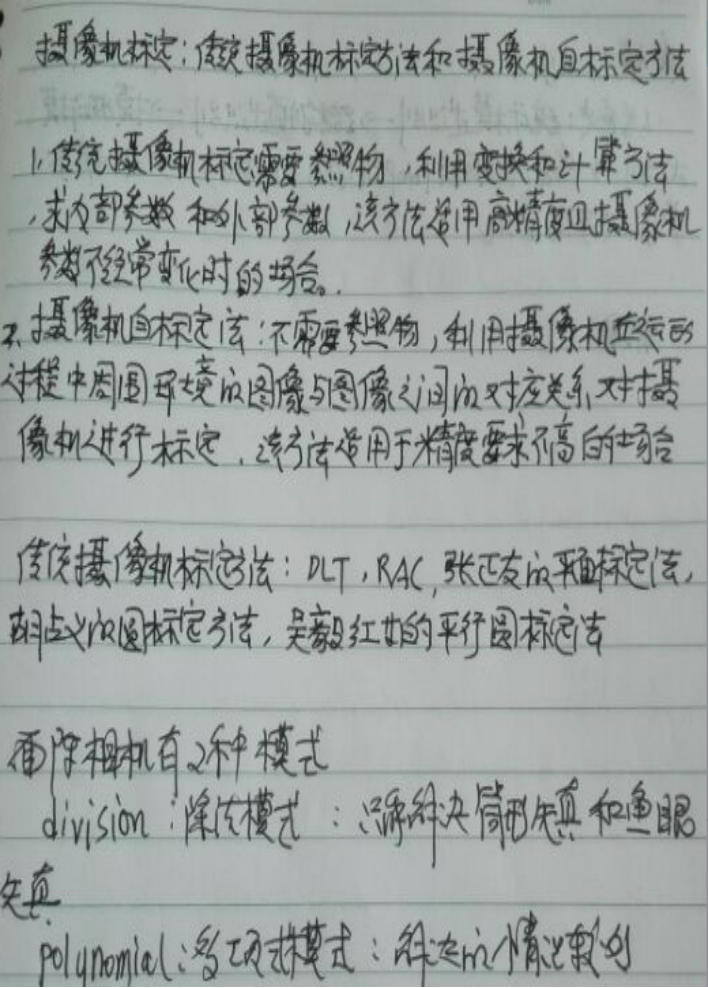 摄像机标定：传统摄像机标定方法和摄像机自标定方法
1、传统摄像机标定需要参照物，利用变换和计算方法
，求内部参数和外部参数，该方法适用高精度且摄像机
参数不经常变化时的场合。
2、摄像机自标定法：不需要参照物，利用摄像机在运动
过程中周围环境的图像与图像之间的对应关系对摄
像机进行标定，该方法适用于精度要求不高的场合
传统摄像机标定方法：DLT，RAC，张正友的平面标定法，
的圆标定方法，吴毅红的平行圆标定法
相机有2种模式
division：除法模式：只能解决筒形失真和鱼眼
失真
polynomial：多项式模式：解决的情况较